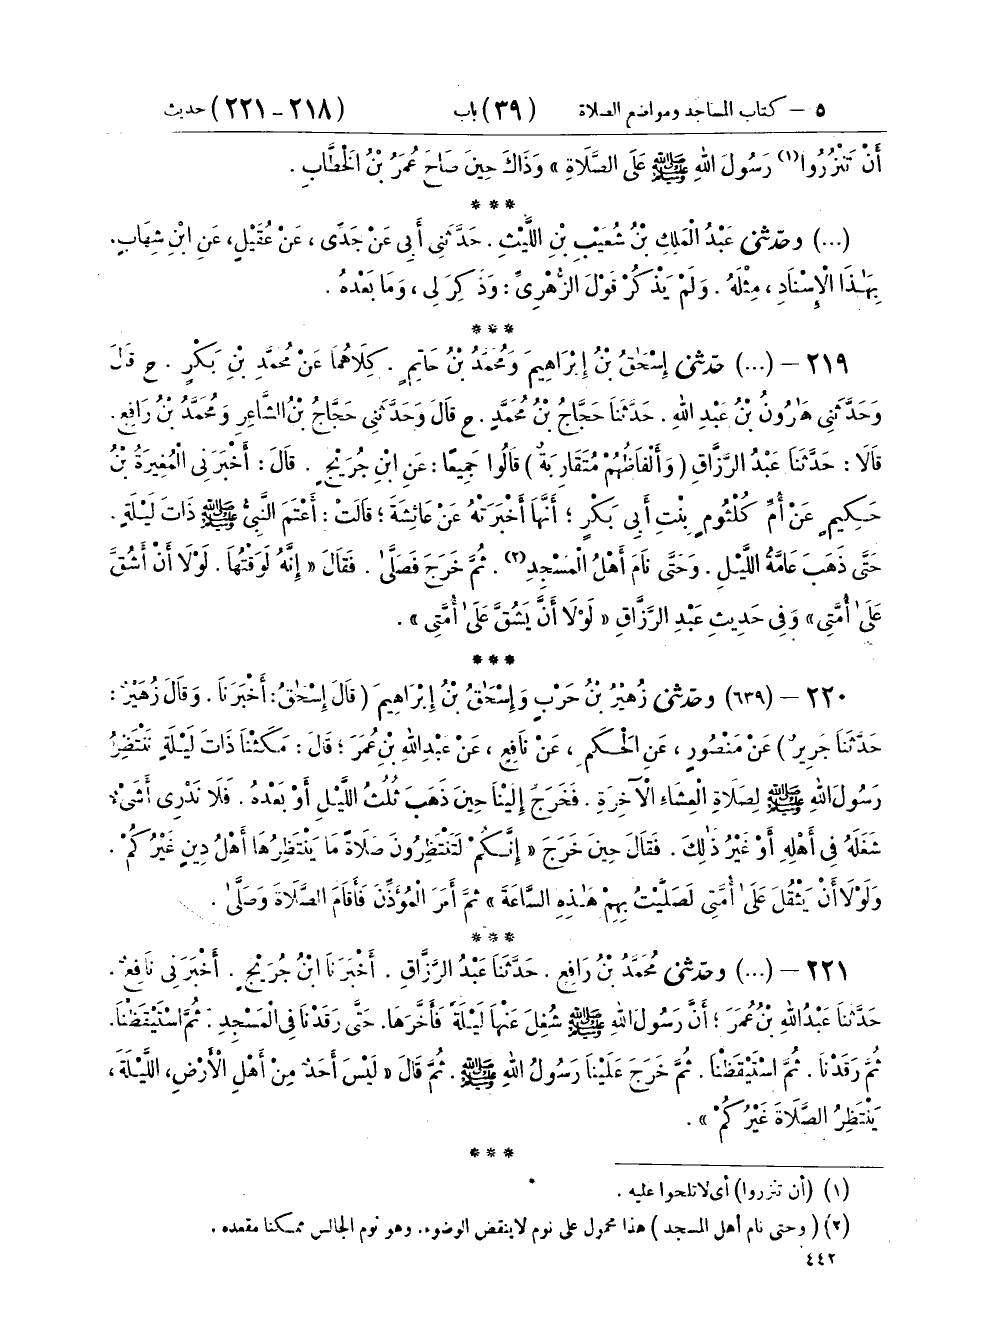 ٥ – كتاب المساجد ومواضع الصلاة (٣٩) باب (٢١٨ – ٢٢١) حديث
أَنْ تَنْزُرُوا(١) رَسُولَ اللهِ ﷺ عَلَى الصَّلَاةِ » وَذَاكَ حِينَ صَاحَ عُمَرُ بْنُ الْخَطَّابِ .
***
(...) وحَدَّثَنِي عَبْدُ الْمَلِكِ بْنُ شُعَيْبِ بْنِ اللَّيْثِ . حَدَّثَنِي أَبِي عَنْ جَدِّي ، عَنْ عُقَيْلٍ، عَنِ ابْنِ شِهَابٍ.
بِهَٰذَا الْإِسْنَادِ ، مِثْلَهُ . وَلَمْ يَذْكُرْ قَوْلَ الزُّهْرِيِّ : وَذُكِرَ لِي ، وَمَا بَعْدَهُ .
***
٢١٩ – (...) حَدَّثَنِي إِسْحَٰقُ بْنُ إِبْرَاهِيمَ وَمُحَمَّدُ بْنُ حَاتِمٍ . كِلَاهُمَا عَنْ مُحَمَّدِ بْنِ بَكْرٍ . ح قَالَ
وَحَدَّثَنِي هَارُونُ بْنُ عَبْدِ اللهِ . حَدَّثَنَا حَجَّاجُ بْنُ مُحَمَّدٍ . ح قَالَ وَحَدَّثَنِي حَجَّاجُ بْنُ الشَّاعِرِ وَمُحَمَّدُ بْنُ رَافِعٍ.
قَالَا : حَدَّثَنَا عَبْدُ الرَّزَّاقِ ( وَأَلْفَاظُهُمْ مُتَقَارِبَةٌ ) قَالُوا جَمِيعًا : عَنِ ابْنِ جُرَيْجٍ . قَالَ : أَخْبَرَنِي الْمُغِيرَةُ بْنُ
حَكِيمٍ عَنْ أُمِّ كُلْثُومٍ بِنْتِ أَبِي بَكْرٍ ؛ أَنَّهَا أَخْبَرَتْهُ عَنْ عَائِشَةَ ؛ قَالَتْ : أَعْتَمَ النَّبِيُّ ﷺ ذَاتَ لَيْلَةٍ .
حَتَّى ذَهَبَ عَامَّةُ اللَّيْلِ . وَحَتَّى نَامَ أَهْلُ الْمَسْجِدِ(٢) . ثُمَّ خَرَجَ فَصَلَّىٰ . فَقَالَ « إِنَّهُ لَوَقْتُهَا . لَوْلَا أَنْ أَشُقَّ
عَلَىٰ أُمَّتِي» وَفِي حَدِيثِ عَبْدِ الرَّزَّاقِ « لَوْلَا أَنْ يَشُقَّ عَلَىٰ أُمَّتِي » .
***
٢٢٠ – (٦٣٩) وحَدَّثَنِي زُهَيْرُ بْنُ حَرْبٍ وَإِسْحَٰقُ بْنُ إِبْرَاهِيمَ ( قَالَ إِسْحَٰقُ: أَخْبَرَنَا . وَقَالَ زُهَيْرٌ :
حَدَّثَنَا جَرِيرٌ ) عَنْ مَنْصُورٍ ، عَنِ الْحَكَمِ ، عَنْ نَافِعٍ ، عَنْ عَبْدِ اللهِ بْنِ عُمَرَ ؛ قَالَ : مَكَثْنَا ذَاتَ لَيْلَةٍ نَنْتَظِرُ
رَسُولَ اللهِ ﷺ لِصَلَاةِ الْعِشَاءِ الْآخِرَةِ . فَخَرَجَ إِلَيْنَا حِينَ ذَهَبَ ثُلُثُ اللَّيْلِ أَوْ بَعْدَهُ . فَلَا نَدْرِي أَشَيْءٌ
شَغَلَهُ فِي أَهْلِهِ أَوْ غَيْرُ ذَٰلِكَ . فَقَالَ حِينَ خَرَجَ « إِنَّكُمْ لَتَنْتَظِرُونَ صَلَاةً مَا يَنْتَظِرُهَا أَهْلُ دِينٍ غَيْرُكُمْ .
وَلَوْلَا أَنْ يَثْقُلَ عَلَىٰ أُمَّتِي لَصَلَّيْتُ بِهِمْ هَٰذِهِ السَّاعَةَ » ثُمَّ أَمَرَ الْمُؤَذِّنَ فَأَقَامَ الصَّلَاةَ وَصَلَّىٰ .
***
٢٢١ – (...) وحَدَّثَنِي مُحَمَّدُ بْنُ رَافِعٍ . حَدَّثَنَا عَبْدُ الرَّزَّاقِ . أَخْبَرَنَا ابْنُ جُرَيْجٍ . أَخْبَرَنِي نَافِعٌ .
حَدَّثَنَا عَبْدُ اللهِ بْنُ عُمَرَ ؛ أَنَّ رَسُولَ اللهِ ﷺ شُغِلَ عَنْهَا لَيْلَةً فَأَخَّرَهَا. حَتَّى رَقَدْنَا فِي الْمَسْجِدِ . ثُمَّ اسْتَيْقَظْنَا.
ثُمَّ رَقَدْنَا . ثُمَّ اسْتَيْقَظْنَا . ثُمَّ خَرَجَ عَلَيْنَا رَسُولُ اللهِ ﷺ . ثُمَّ قَالَ « لَيْسَ أَحَدٌ مِنْ أَهْلِ الْأَرْضِ، اللَّيْلَةَ ،
يَنْتَظِرُ الصَّلَاةَ غَيْرُكُمْ » .
***
(١) (أن تنزروا) أى لا تلحوا عليه .
(٢) ( وحتى نام أهل المسجد ) هذا محمول على نوم لا ينقض الوضوء. وهو نوم الجالس ممكنا مقعده .
٤٤٢